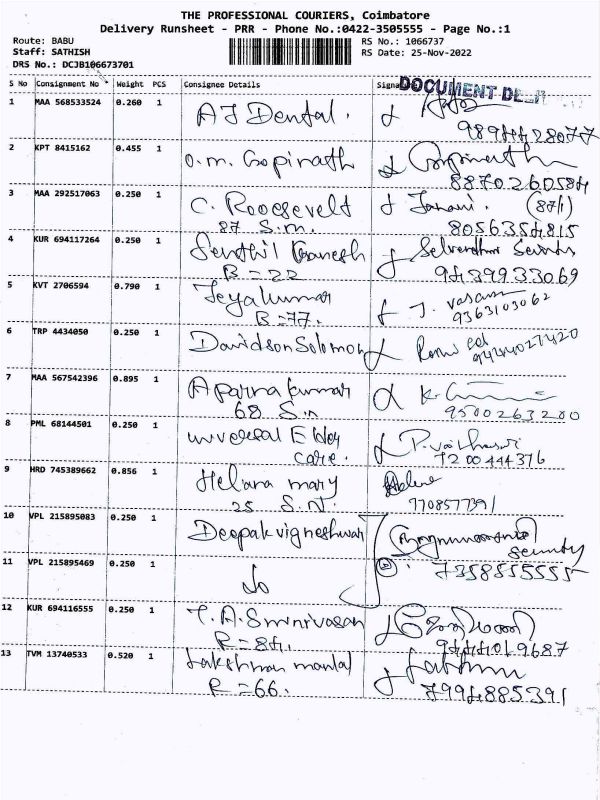 THE PROFESSIONAL COURIERS, Coimbatore
Delivery Runsheet - PRR - Phone No.:0422-3505555 - Page No.:1
Route: BABU RS No.: 1066737
Staff: SATHISH RS Date: 25-Nov-2022
DRS No.: DCJB106673701
S No Consignment No Weight PCS Consignee Details Signa
DOCUMENT
1 MAA 568533524 0.260 1 AJ Dental.
2 KPT 8415162 0.455 1 O.M. Gopinath
8870260584
3 MAA 292517063 0.250 1 C. Roosevelt Janani. (87/1)
87 S.M. 8056354815
4 KUR 694117264 0.250 1 Senthil Ganesh
B = 22 9439933069
5 KVT 2706594 0.790 1 Jeyakumar J. vasan
B = 77. 9363103062
6 TRP 4434050 0.250 1 Davidson Solomon
9444027420
7 MAA 567542396 0.895 1 Aparna kumar
68 S.n 9500263200
8 PML 68144501 0.250 1 universal Elder
care. 7200444376
9 HRD 745389662 0.856 1 Helana mary Helene
25 S.N. 770857391
10 VPL 215895083 0.250 1 Deepak vigneshwar
Security
11 VPL 215895469 0.250 1 do 7358555555
12 KUR 694116555 0.250 1 T.A. Srinivasan
R = 84. 9444019687
13 TVM 13740533 0.520 1 Lakshman
R = 66. 7994885391